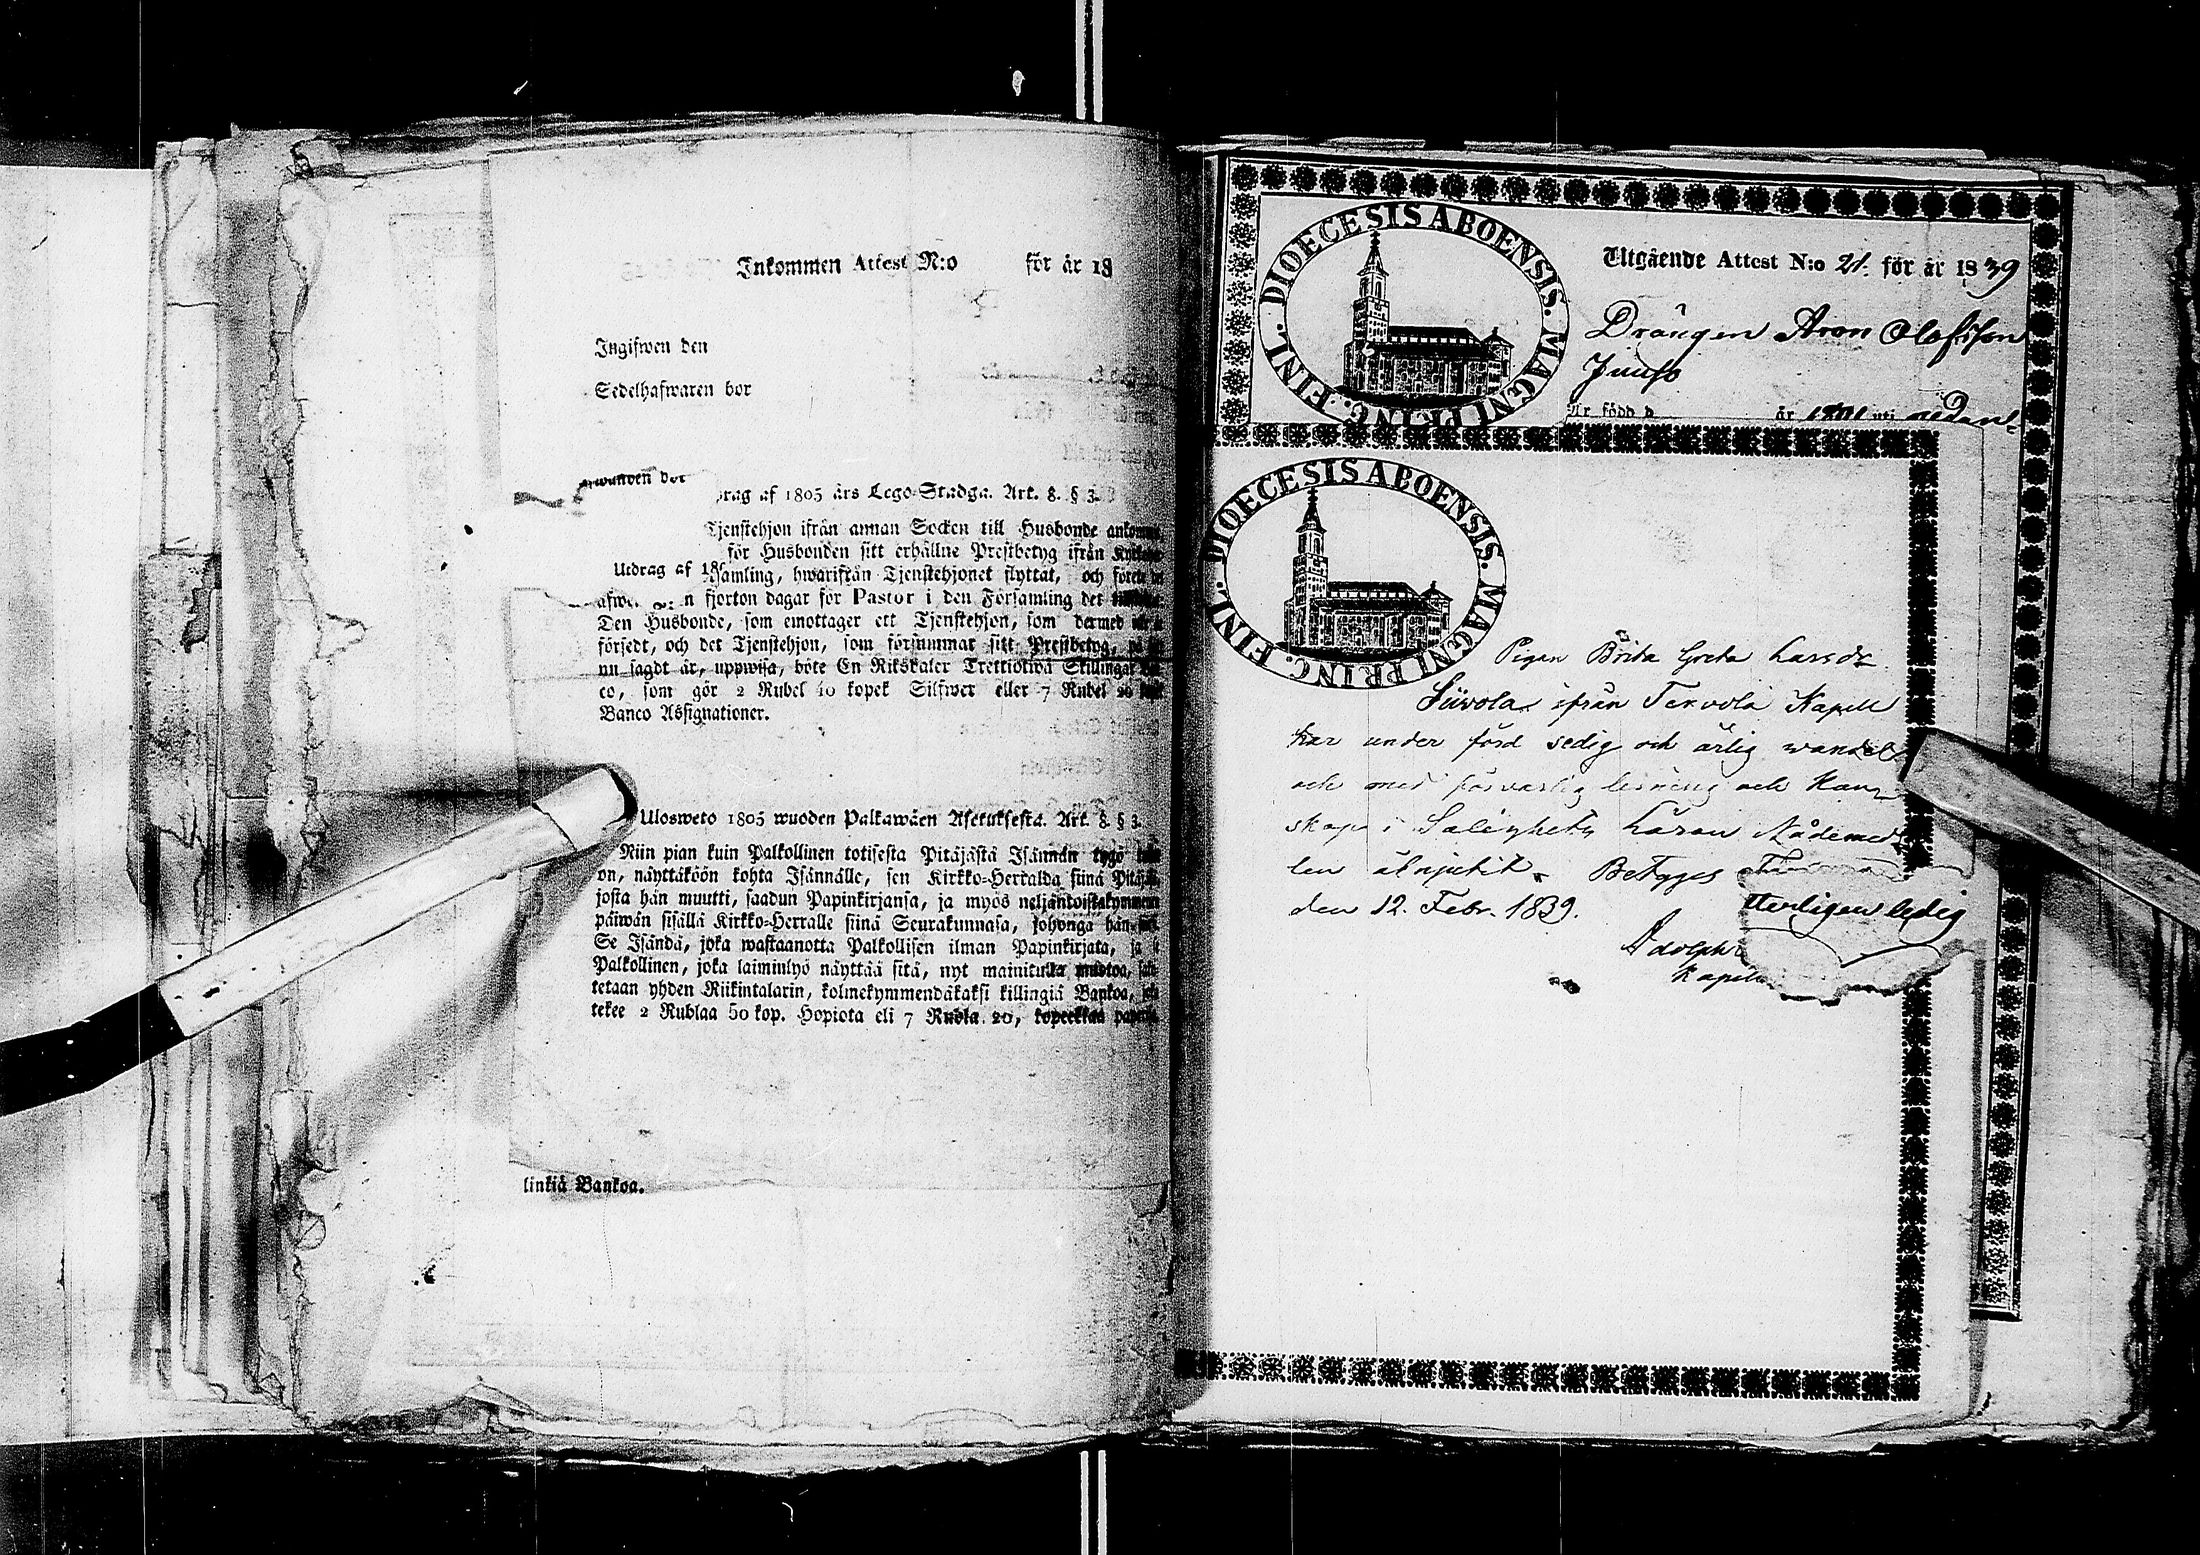 Inkommen Attest N:o för år 18
Ingifwen den
Sedelhafwaren bor
drag af 1805 års Lego-Stadga. Art. 8. § 3.
Tjenstehjon ifrån annan Socken till Husbonde
för Husbonden sitt erhållne Prestbetyg ifrån
Utdrag af 18
samling, hwarifrån Tjenstehjonet flyttat, och
n fjorton dagar för Pastor i den Församling det
Den Husbonde, som emottager ett Tjenstehjon, som dermed
försedt, och det Tjenstehjon, som försummar sitt Prestbetyg,
nu sagdt är, uppwisa, böte En Riksdaler Trettiotwå Skillingar
co, som gör 2 Rubel 40 kopek Silfwer eller 7 Rubel 20
Banco Assignationer.
Ulosweto 1805 wuoden Palkawäen Asetuksesta. Art. 8 § 3.
Niin pian kuin Palkollinen totisesta Pitäjästä Isännän tygö
on, näyttäköön kohta Isännälle, sen Kirkko-Herralda siinä
josta hän muutti, saadun Papinkirjansa, ja myös neljäntoistakymmenen
päiwän sisällä Kirkko-Herralle siinä Seurakunnasa, johonga hän
Se Isändä, joka wastaanotta Palkollisen ilman Papinkirjata, ja
Palkollinen, joka laiminlyö näyttää sitä, nyt mainitulla muotoa,
tetaan yhden Riikintalarin, kolmekymmendäkaksi killingiä Bankoa,
tekee 2 Rublaa 50 kop. Hopiota eli 7 Rubla 20, kopeekkaa
linkiä Bankoa.
DIOECESIS ABOENSIS. MAGNI PRINC. FINL.
Utgående Attest N:o 21. för år 1839
Drängen Aron Olofsson
Juuso
Är född d år uti nedan
DIOECESIS ABOENSIS. MAGNI PRINC. FINL.
Pigan Brita Greta Larsdr
ifrån Tervola Kapell
har under förd sedig och ärlig wandel
och med försvarlig läsning och Kun
skap i Salighets Läran Nådemed
len Betyges
terligen ledig
den 12. Febr. 1839.
Adolph
Kapell